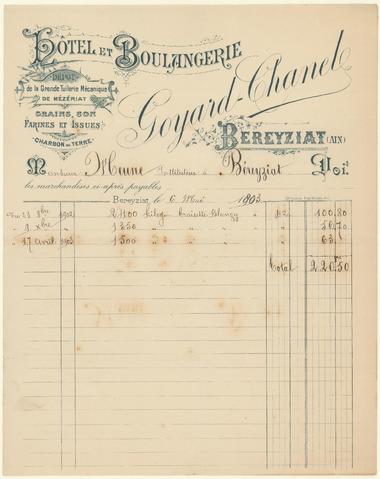 HOTEL ET BOULANGERIE
DEPOT
de la Grande Tuilerie Mécanique
DE MÉZÉRIAT
GRAINS, SON
FARINES ET ISSUES
CHARBON DE TERRE
Goyard-Chanel
BEREYZIAT (AIN)
Monsieur Meune Instituteur à Béréyziat Doit
les marchandises ci-après payables
Bereyziat, le 6 Mai 1903
23 8bre 1902 2400 Blanzy à 42 100,80
1 Xbre " 1350 " " " " 56,70
17 Avril 1903 1500 " " " " 63,"
Total 220.50